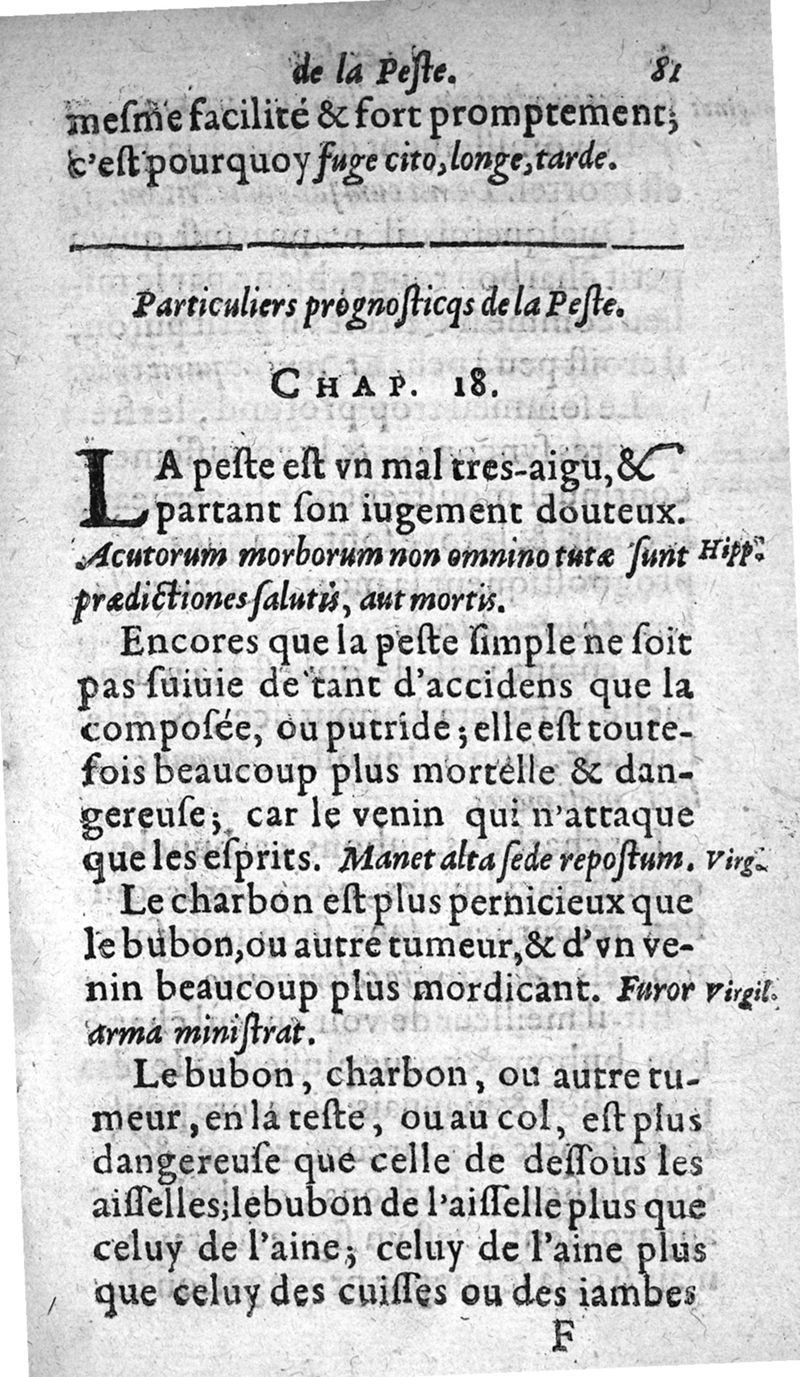 de la Peſte. 81
meſme facilité & fort promptement;
c'eſt pourquoy fuge cito, longe, tarde.
Particuliers prognoſticqs de la Peſte.
CHAP. 18.
LA peſte eſt vn mal tres-aigu, &
partant ſon iugement douteux.
Acutorum morborum non omnino tutæ ſunt Hipp.
prædictiones ſalutis, aut mortis.
Encores que la peſte ſimple ne ſoit
pas ſuiuie de tant d'accidens que la
compoſée, ou putride; elle eſt toute-
fois beaucoup plus mortelle & dan-
gereuſe; car le venin qui n'attaque
que les eſprits. Manet alta ſede repoſtum. Virg.
Le charbon eſt plus pernicieux que
le bubon, ou autre tumeur, & d'vn ve-
nin beaucoup plus mordicant. Furor Virgil.
arma miniſtrat.
Le bubon, charbon, ou autre tu-
meur, en la teſte, ou au col, eſt plus
dangereuſe que celle de deſſous les
aiſſelles; le bubon de l'aiſſelle plus que
celuy de l'aine; celuy de l'aine plus
que celuy des cuiſſes ou des iambes
F